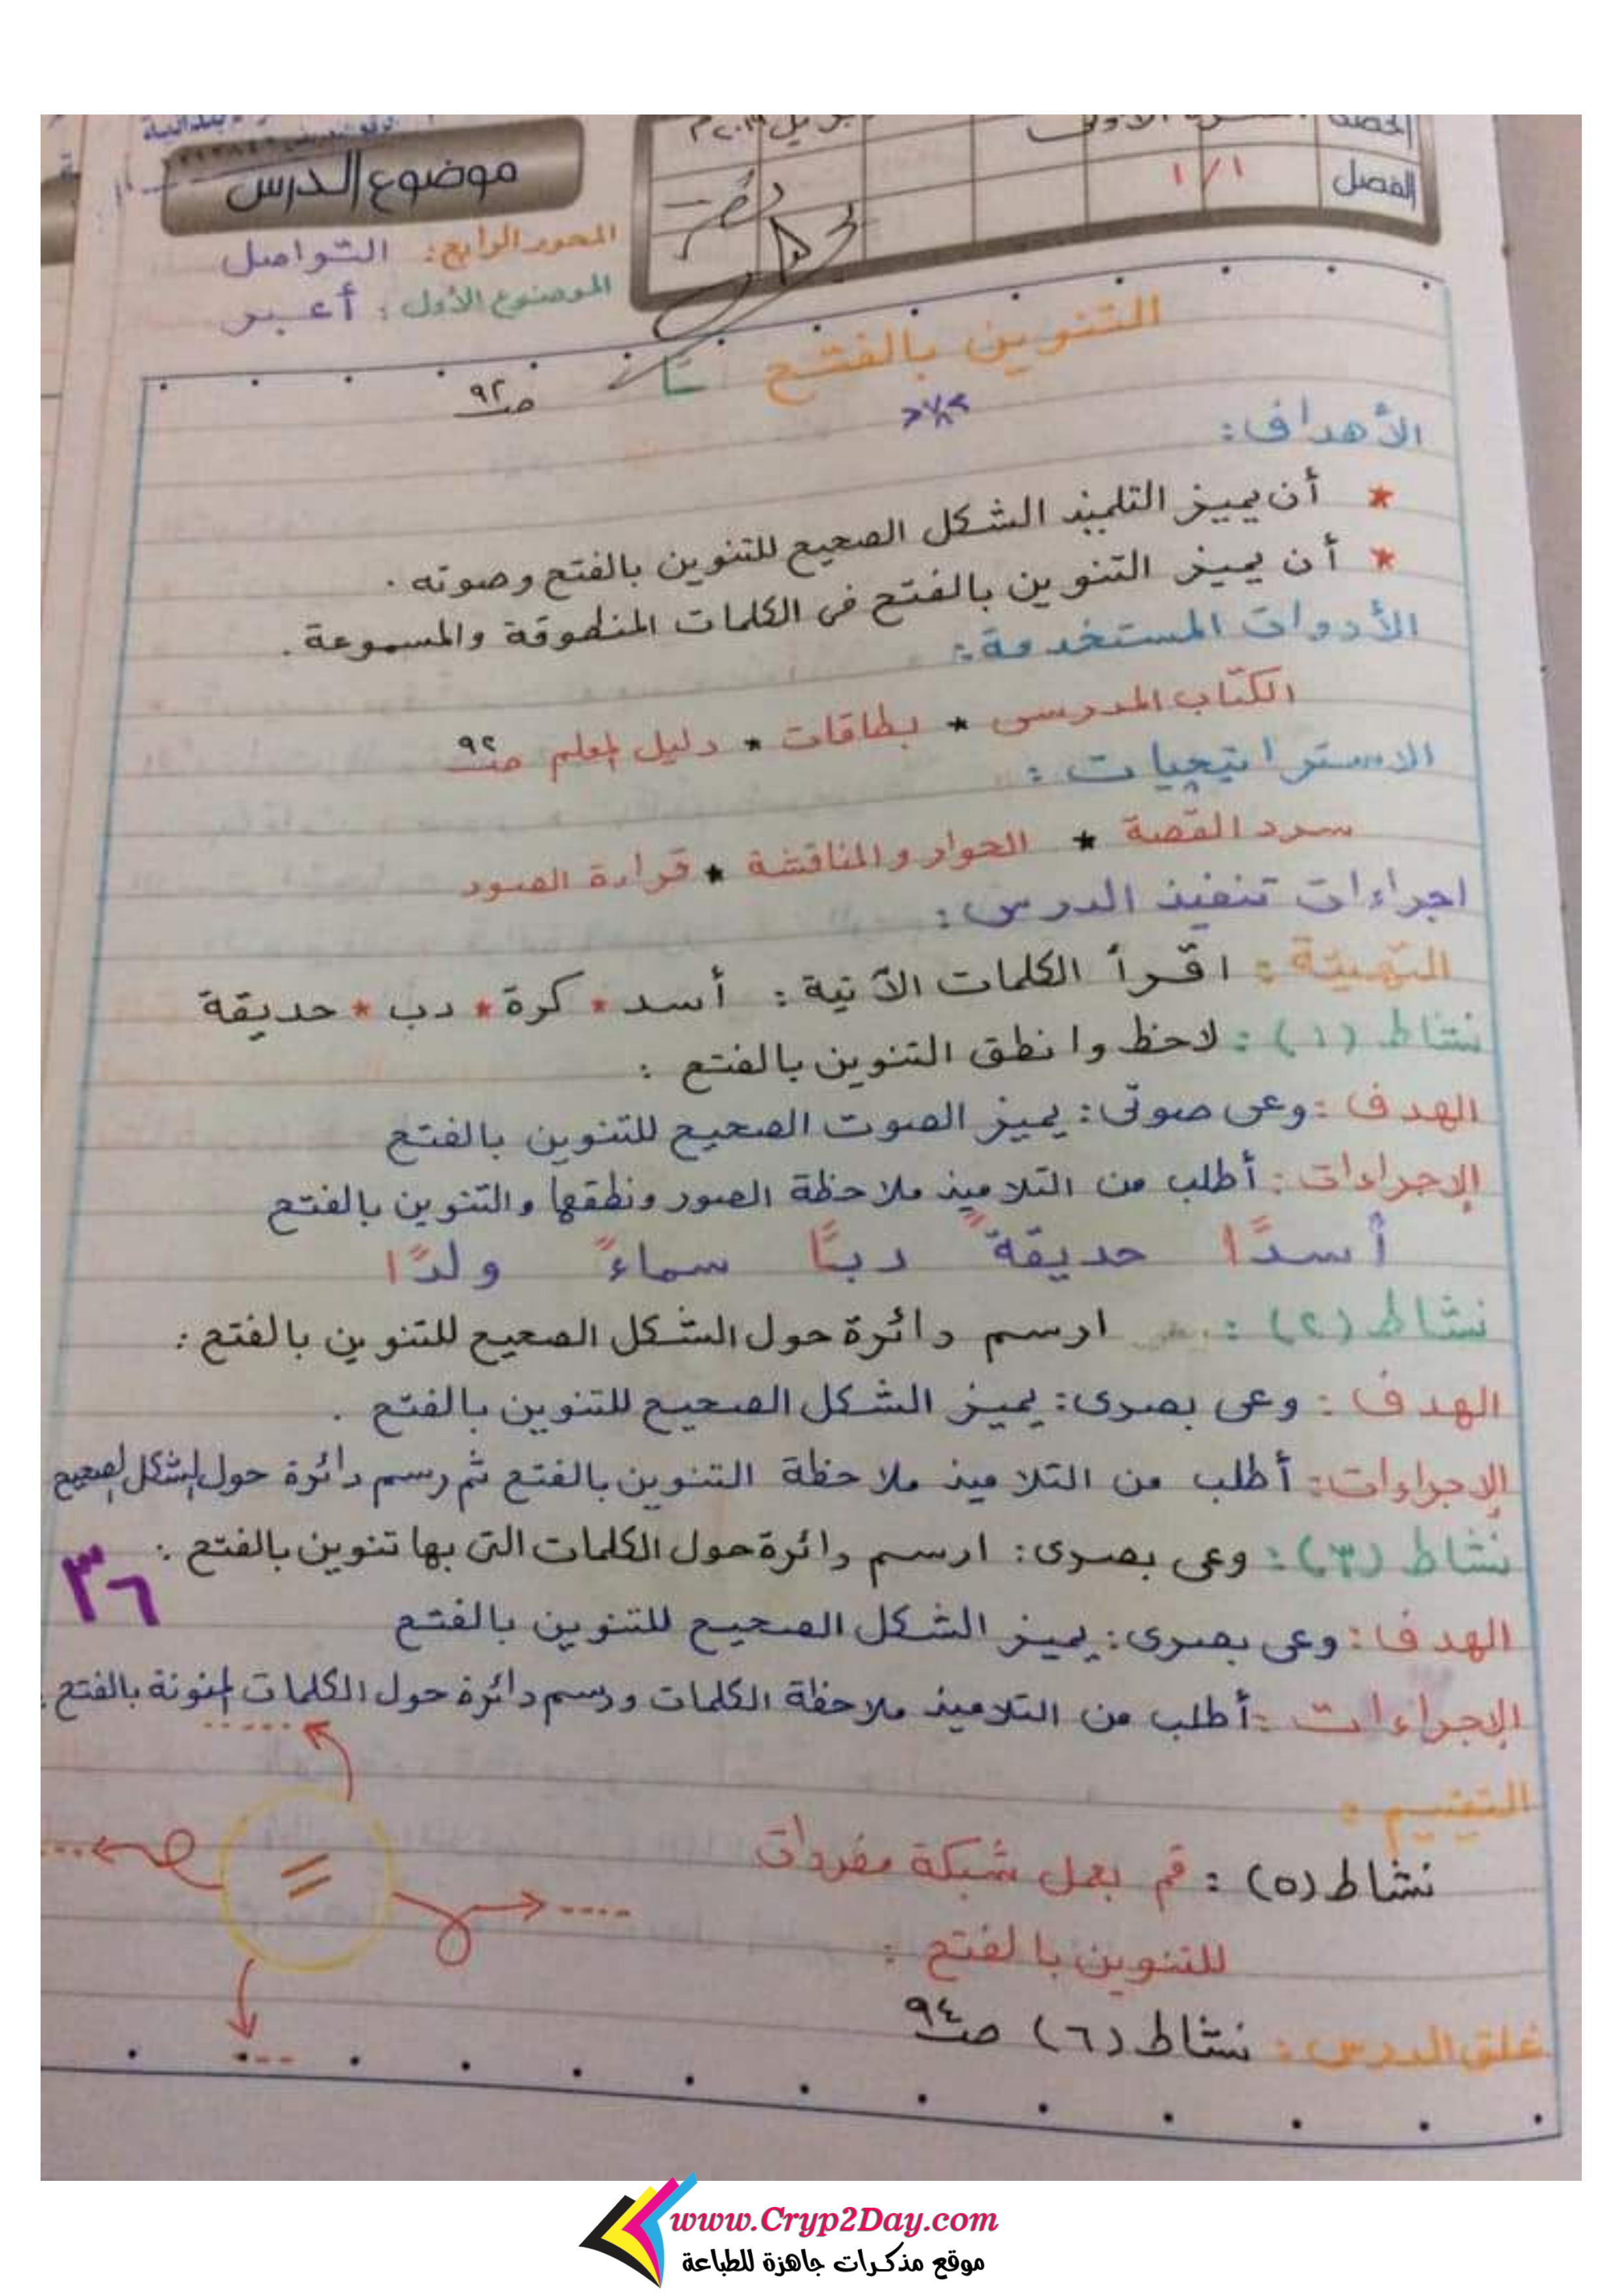 الحصة
أبريل ٢٠١٩م
الفصل
١/١
موضوع الدرس
المحور الرابع: التواصل
الموضوع الأول: أعبر
التنوين بالفتح
ص٩٢
الأهداف:
* أن يميز التلميذ الشكل الصحيح للتنوين بالفتح وصوته.
* أن يميز التنوين بالفتح فى الكلمات المنطوقة والمسموعة.
الأدوات المستخدمة:
الكتاب المدرسى * بطاقات * دليل المعلم ص٩٢
الاستراتيجيات:
سرد القصة * الحوار والمناقشة * قراءة الصور
اجراءات تنفيذ الدرس:
التهيئة: اقرأ الكلمات الآتية: أسد * كرة * دب * حديقة
نشاط (١): لاحظ وانطق التنوين بالفتح:
الهدف: وعى صوتى: يميز الصوت الصحيح للتنوين بالفتح
الإجراءات: أطلب من التلاميذ ملاحظة الصور ونطقها والتنوين بالفتح
أسدًا حديقةً دبًا سماءً ولدًا
نشاط (٢): ارسم دائرة حول الشكل الصحيح للتنوين بالفتح:
الهدف: وعى بصرى: يميز الشكل الصحيح للتنوين بالفتح.
الإجراءات: أطلب من التلاميذ ملاحظة التنوين بالفتح ثم رسم دائرة حول الشكل الصحيح
نشاط (٣): وعى بصرى: ارسم دائرة حول الكلمات التى بها تنوين بالفتح:
٣٦
الهدف: وعى بصرى: يميز الشكل الصحيح للتنوين بالفتح
الإجراءات: أطلب من التلاميذ ملاحظة الكلمات ورسم دائرة حول الكلمات المنونة بالفتح.
التقييم:
نشاط (٥): قم بعمل شبكة مفردات
للتنوين بالفتح:
غلق الدرس: نشاط (٦) ص٩٤
www.Cryp2Day.com
موقع مذكرات جاهزة للطباعة